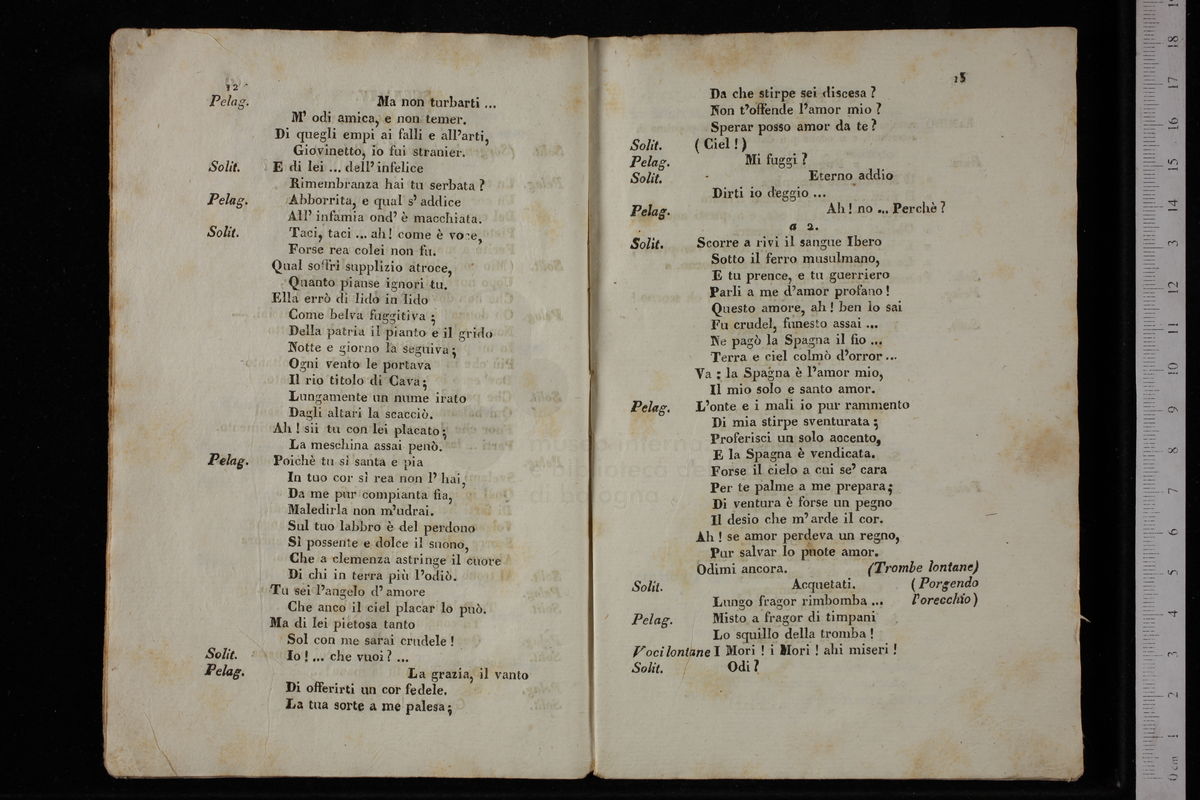 12
Pelag. Ma non turbarti ...
M' odi amica, e non temer.
Di quegli empi ai falli e all'arti,
Giovinetto, io fui stranier.
Solit. E di lei ... dell' infelice
Rimembranza hai tu serbata ?
Pelag. Abborrita, e qual s' addice
All' infamia ond' è macchiata.
Solit. Taci, taci ... ah! come è voce,
Forse rea colei non fu.
Qual soffrì supplizio atroce,
Quanto pianse ignori tu.
Ella errò di lido in lido
Come belva fuggitiva ;
Della patria il pianto e il grido
Notte e giorno la seguiva ;
Ogni vento le portava
Il rio titolo di Cava ;
Lungamente un nume irato
Dagli altari la scacciò.
Ah ! sii tu con lei placato ;
La meschina assai penò.
Pelag. Poichè tu sì santa e pia
In tuo cor sì rea non l' hai,
Da me pur compianta fia,
Maledirla non m'udrai.
Sul tuo labbro è del perdono
Sì possente e dolce il suono,
Che a clemenza astringe il cuore
Di chi in terra più l'odiò.
Tu sei l'angelo d' amore
Che anco il ciel placar lo può.
Ma di lei pietosa tanto
Sol con me sarai crudele !
Solit. Io ! ... che vuoi ? ...
Pelag. La grazia, il vanto
Di offerirti un cor fedele.
La tua sorte a me palesa ;
13
Da che stirpe sei discesa ?
Non t'offende l'amor mio ?
Sperar posso amor da te ?
Solit. ( Ciel ! )
Pelag. Mi fuggi ?
Solit. Eterno addio
Dirti io deggio ...
Pelag. Ah ! no ... Perchè ?
a 2.
Solit. Scorre a rivi il sangue Ibero
Sotto il ferro musulmano,
E tu prence, e tu guerriero
Parli a me d'amor profano !
Questo amore, ah ! ben lo sai
Fu crudel, funesto assai ...
Ne pagò la Spagna il fio ...
Terra e ciel colmò d'orror ...
Va : la Spagna è l'amor mio,
Il mio solo e santo amor.
Pelag. L'onte e i mali io pur rammento
Di mia stirpe sventurata ;
Proferisci un solo accento,
E la Spagna è vendicata.
Forse il cielo a cui se' cara
Per te palme a me prepara ;
Di ventura è forse un pegno
Il desio che m' arde il cor.
Ah ! se amor perdeva un regno,
Pur salvar lo puote amor.
Odimi ancora. (Trombe lontane)
Solit. Acquetati. (Porgendo
Lungo fragor rimbomba ... l'orecchio)
Pelag. Misto a fragor di timpani
Lo squillo della tromba !
Voci lontane I Mori ! i Mori ! ahi miseri !
Solit. Odi ?